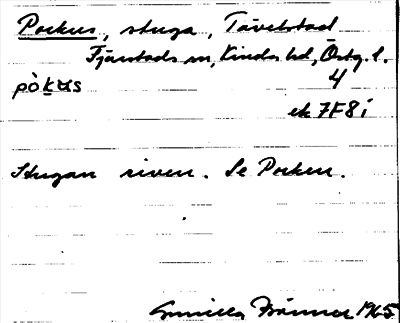 Pockus, stuga, Tävelstad
Fjärstads sn, Kinds hd, Östg. l.
4
pò̱kus
ek 7F8i
Stugan riven. Se Pocken.
Gunilla 1965